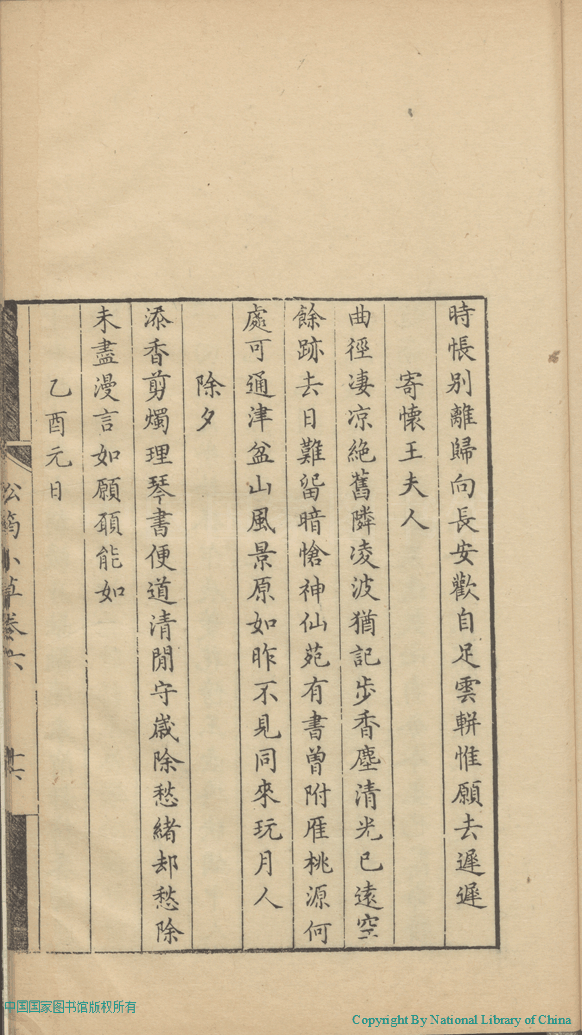 時悵別離歸向長安歡自足雲軿惟願去遲遲
寄懷王夫人
曲徑凄凉絶舊隣凌波猶記步香塵清光已遠空
餘跡去日難留暗愴神仙苑有書曾附雁桃源何
處可通津盆山風景原如昨不見同來玩月人
除夕
添香剪燭理琴書便道清閒守歲除愁緒却愁除
未盡漫言如願頋能如
乙酉元日
松筠小草卷六
十六
中国国家图书馆版权所有
Copyright By National Library of China